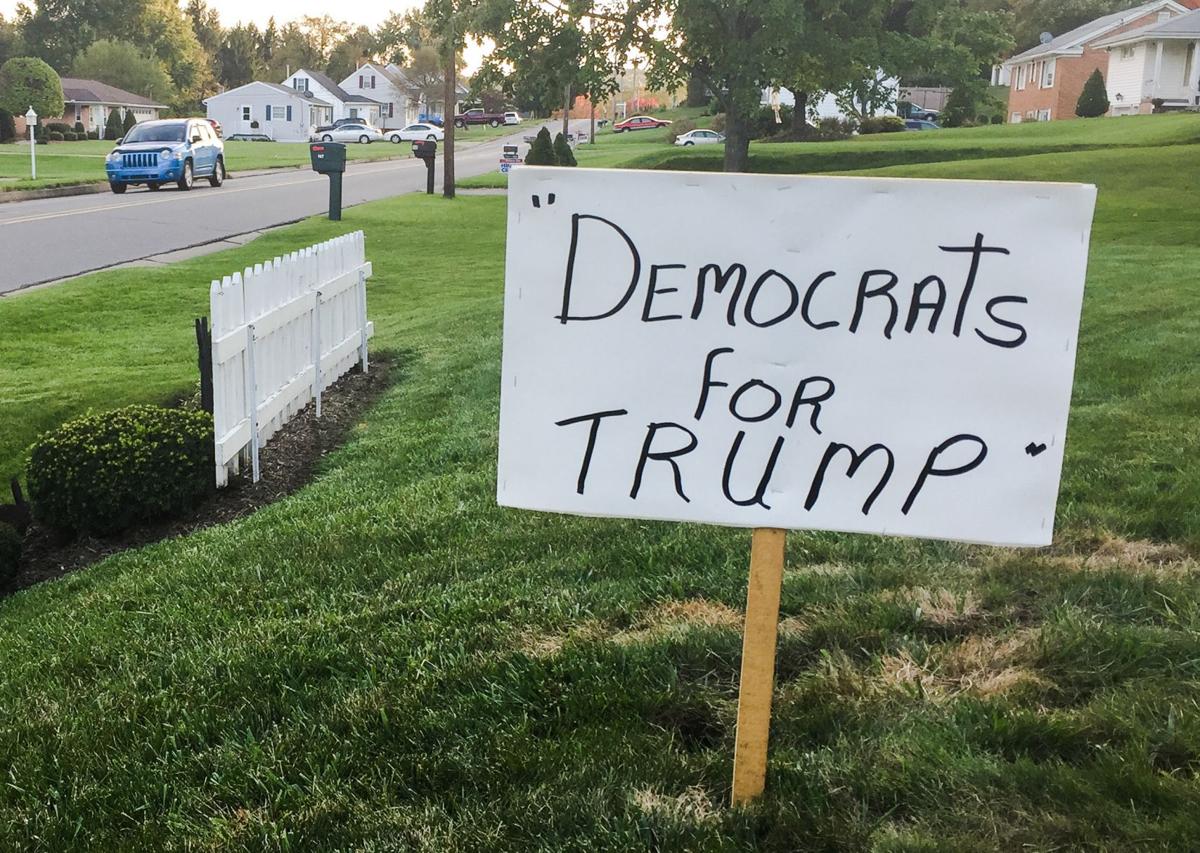 "DEMOCRATS
FOR
TRUMP"